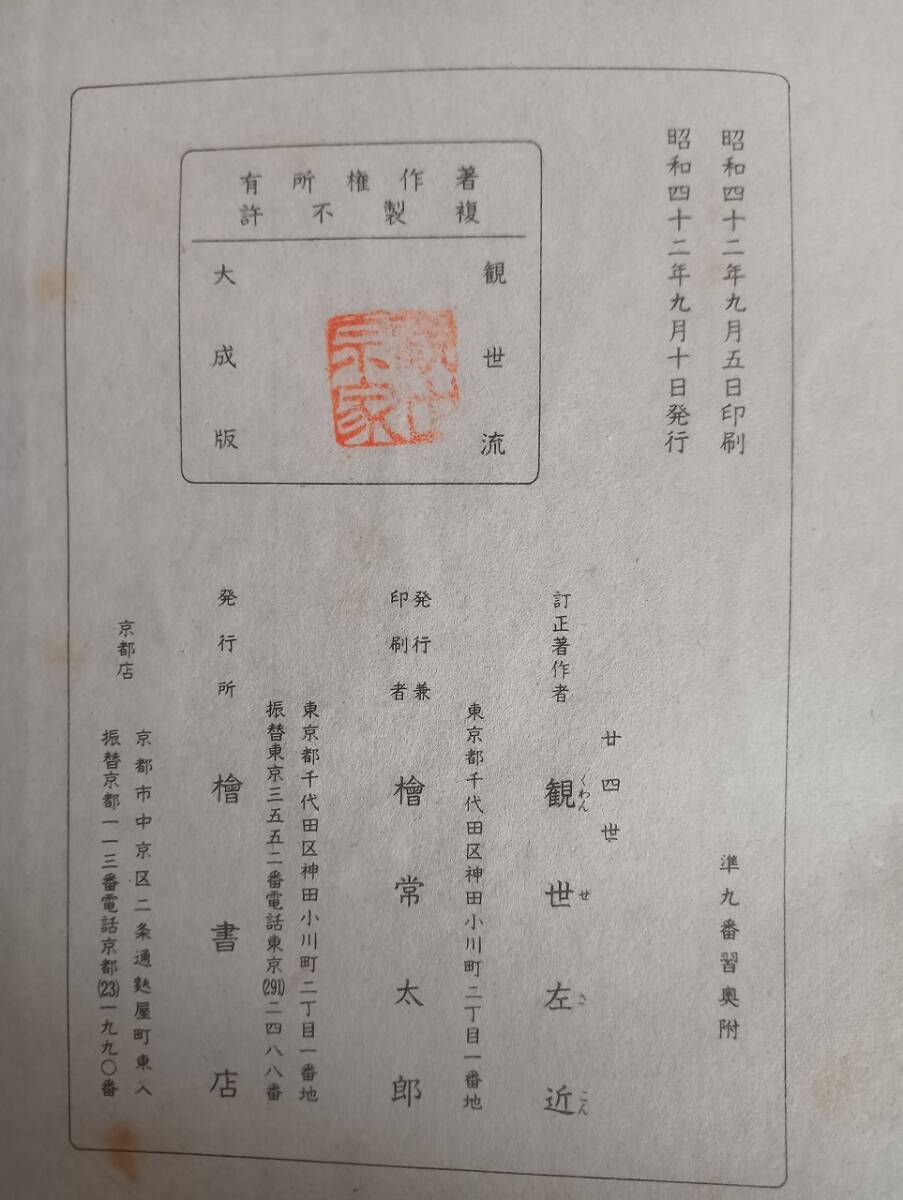 昭和四十二年九月五日印刷
昭和四十二年九月十日発行
準九番習奥附
著作権所有
複製不許
観世流
観世
宗家
大成版
廿四世
訂正著作者
観世左近
くわんぜさこん
東京都千代田区神田小川町二丁目一番地
発行兼
印刷者
檜常太郎
東京都千代田区神田小川町二丁目一番地
振替東京三五五二番電話東京(291)二四八八番
発行所
檜書店
京都店
京都市中京区二条通麩屋町東入
振替京都一一三番電話京都(23)一九九〇番